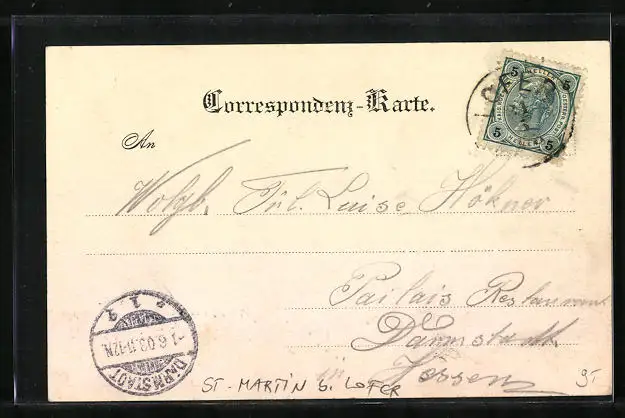 Correspondenz-Karte.
LOFER
5 HELLER 5
5 HELLER 5
An
Wolgb. Frl. Luise Hökner
Pailais Restaurant
Darmstadt
in Hessen
DARMSTADT
1.6.03.11-12N.
ST-MARTIN b. LOFER
9.-